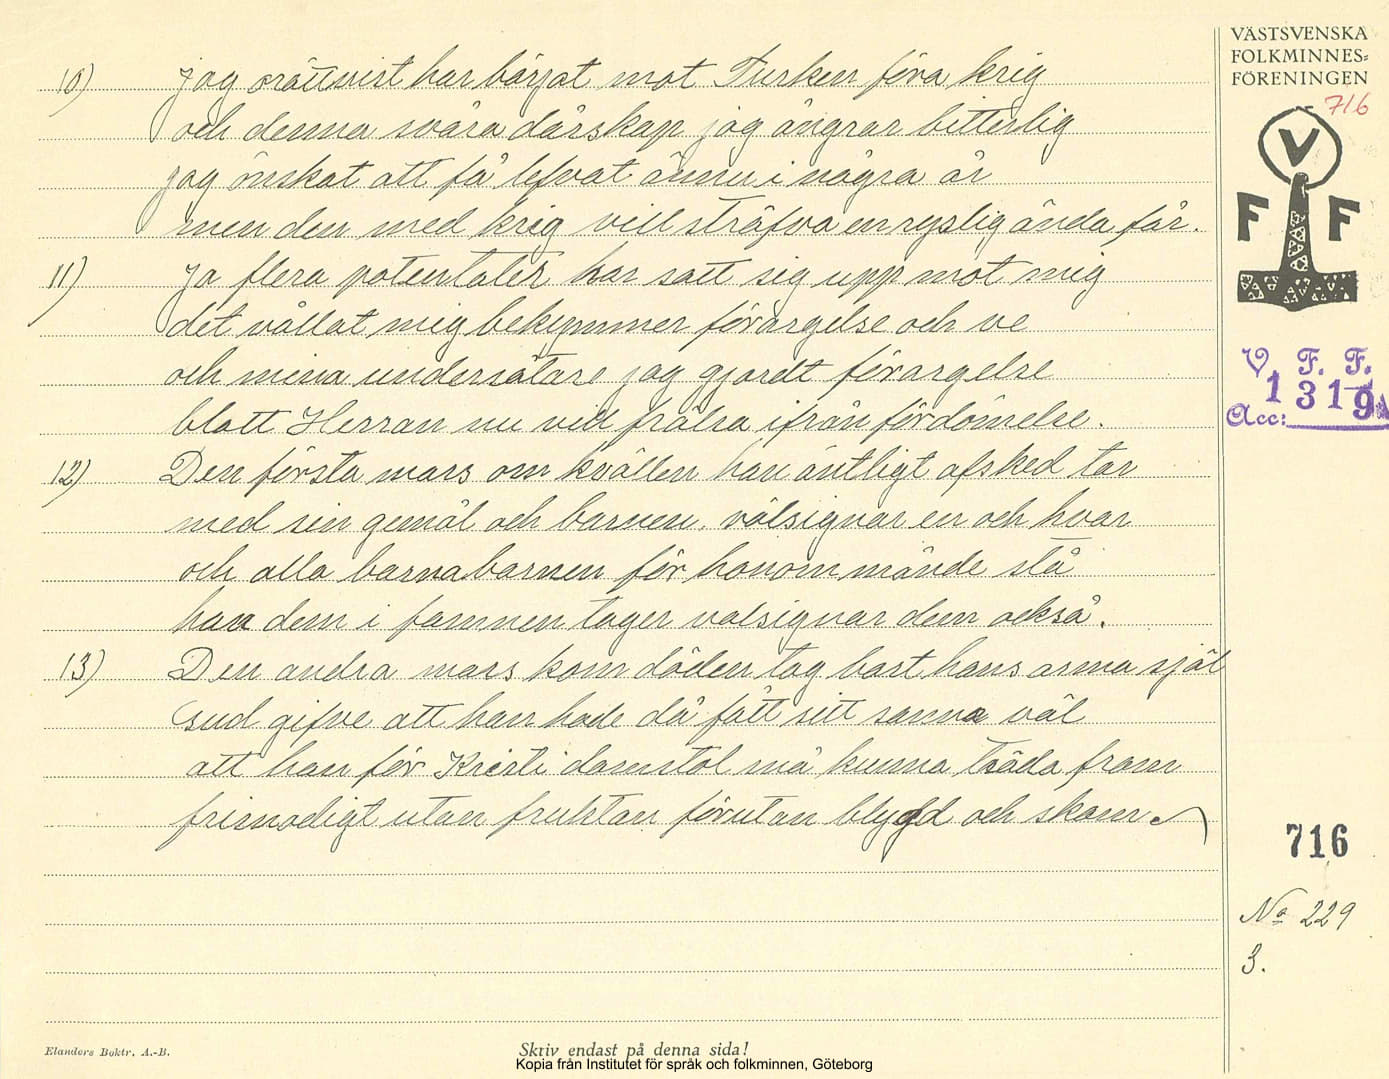 VÄSTSVENSKA
FOLKMINNES-
FÖRENINGEN
716
V
F F
V. F. F.
1319
Acc:
10) jag orättvist har börjat mot Turken föra krig
och denna svåra dårskap jag ångrar bitterlig
jag önskat att få lefvat ännu i några år
men den med krig vill sträfva en ryslig ända får.
11) Ja flera potentater har satt sig upp mot mig
det vållat mig bekymmer förargelse och ve
och mina undersåtare jag gjordt förargelse
blott Herran nu vill frälsa ifrån fördömelse.
12) Den första mars om kvällen han äntligt afsked tar
med sin gemål och barnen, välsignar en och hvar
och alla barnabarnen för honom månde stå
han dem i famnen tager valsignar dem också.
13) Den andra mars kom döden tog bort hans arma själ
Gud gifve att han hade då fått sitt sanna väl
att han för Kristi domstol må kunna träda fram
frimodigt utan fruktan förutan blygd och skam
716
No 229
3.
Elanders Boktr. A.-B.
Skriv endast på denna sida!
Kopia från Institutet för språk och folkminnen, Göteborg